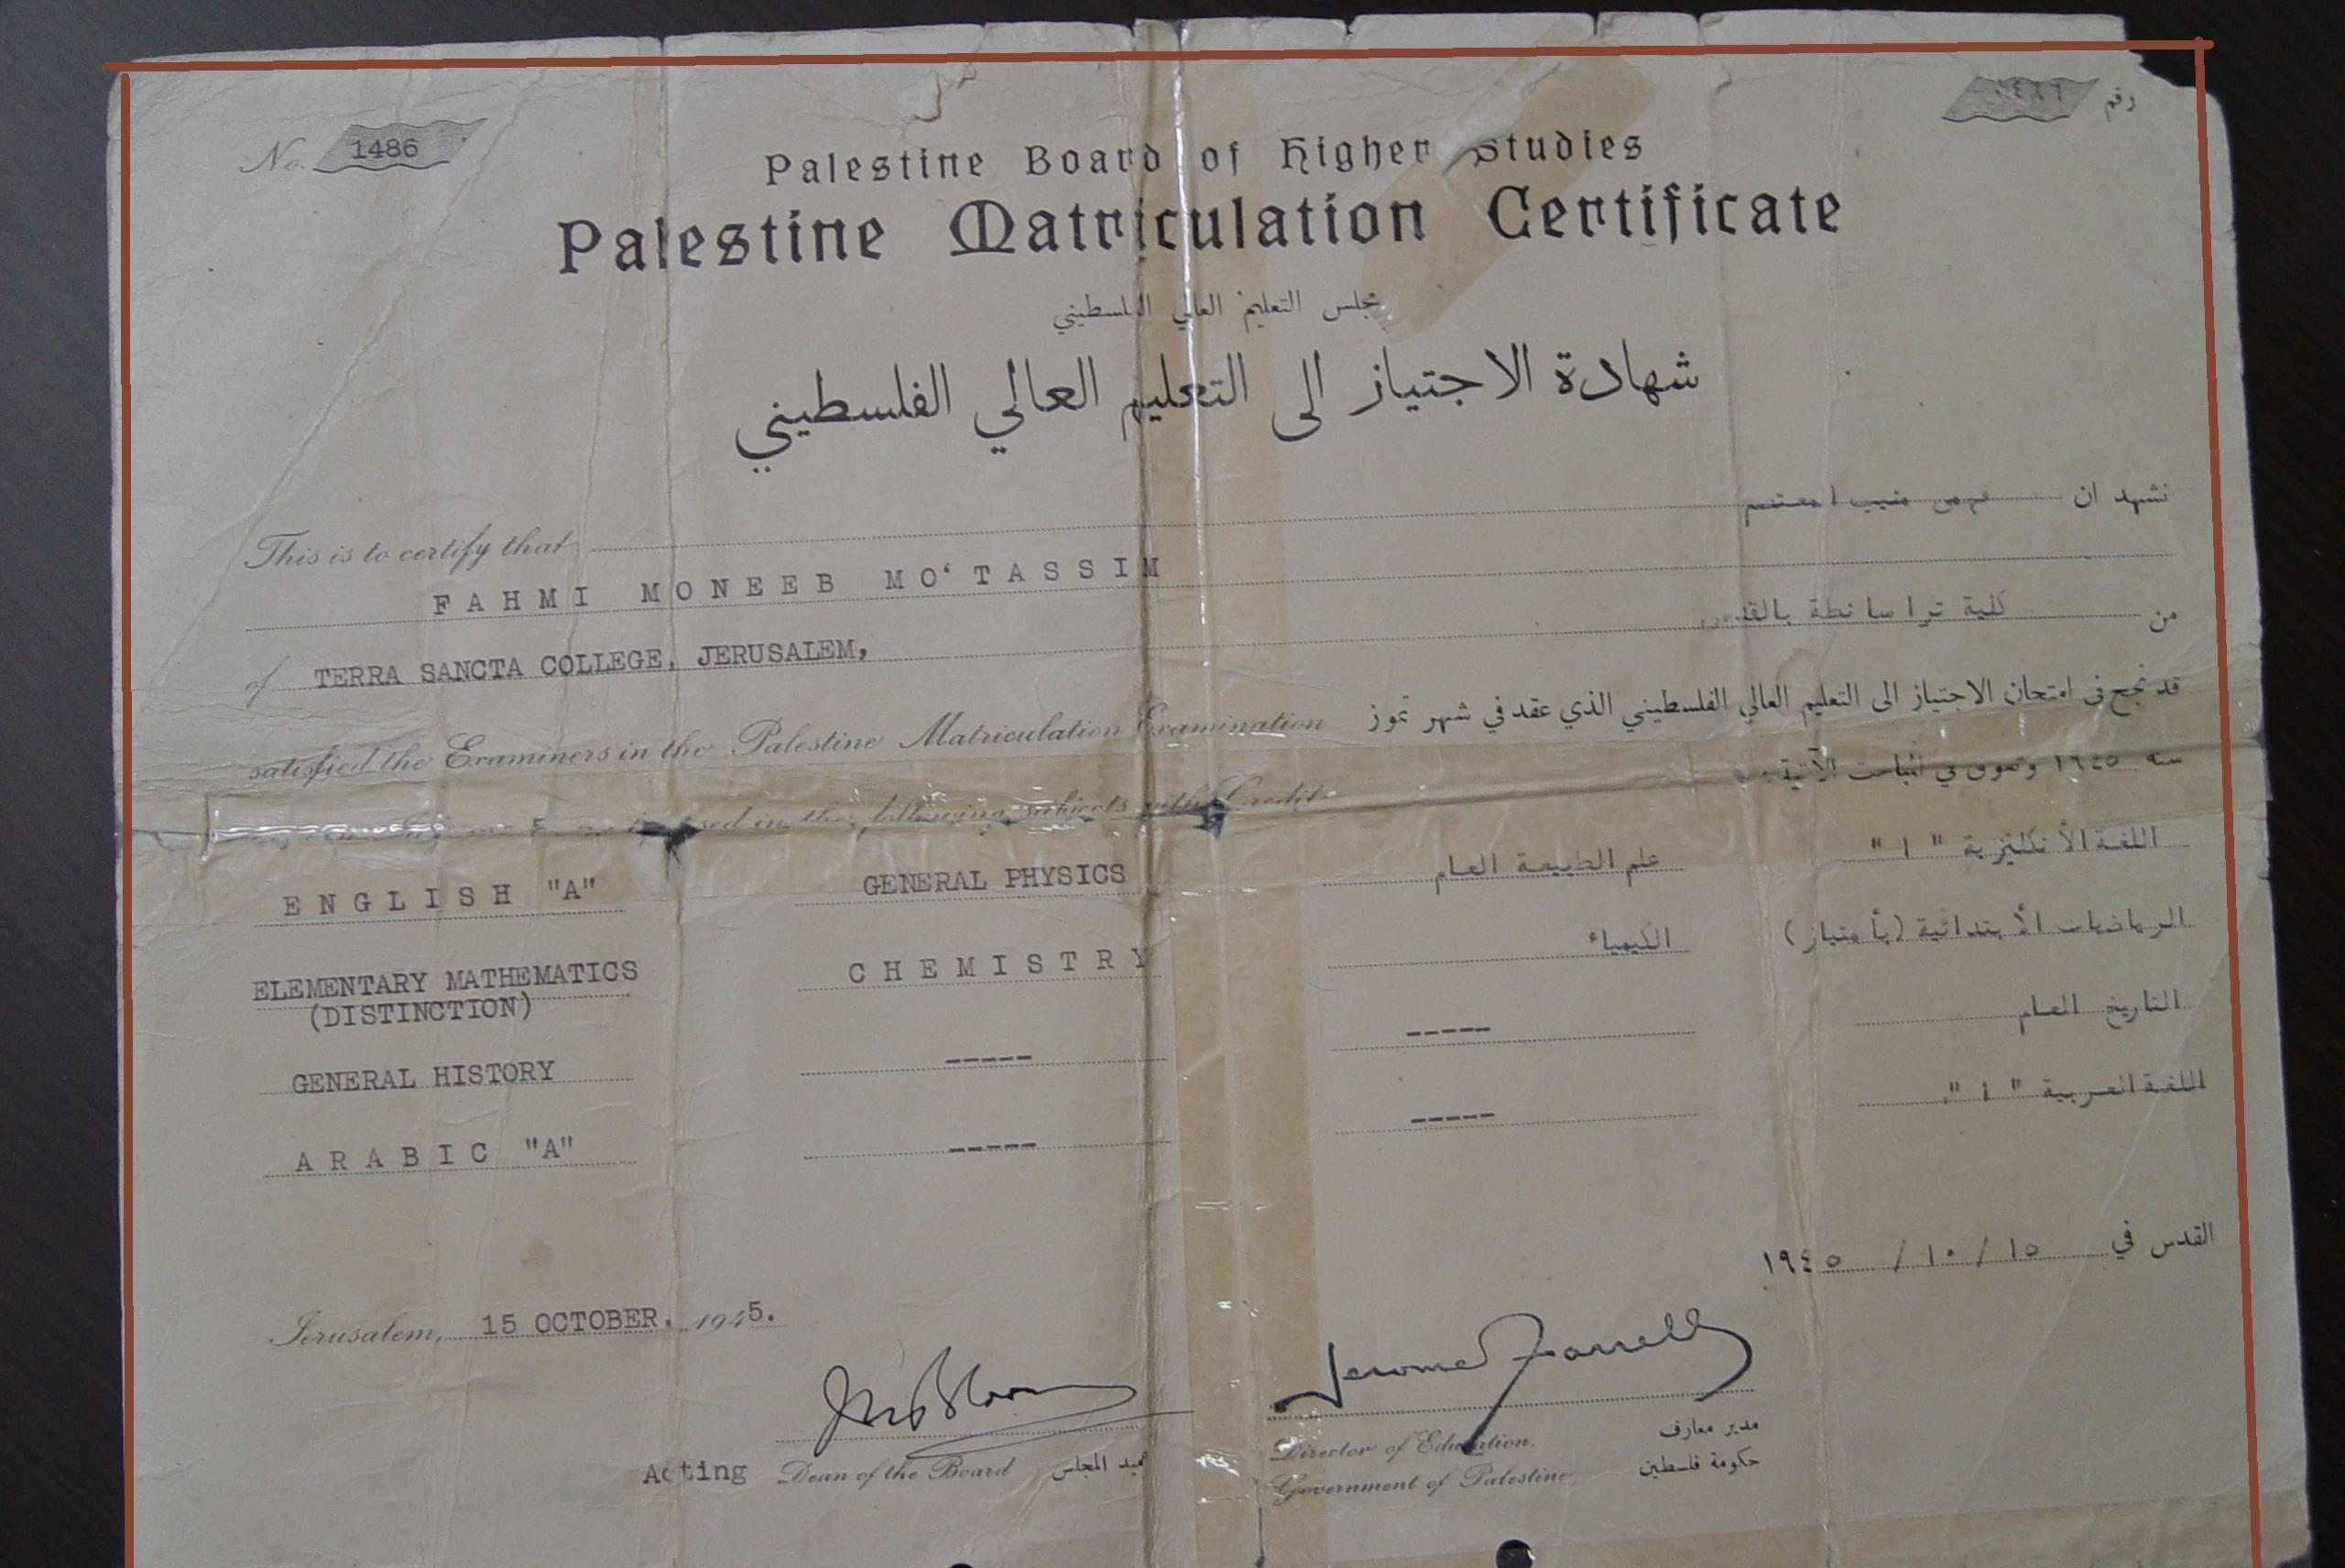 No. 1486
رقم ١٤٨٦
Palestine Board of Higher Studies
Palestine Matriculation Certificate
مجلس التعليم العالي الفلسطيني
شهادة الاجتياز الى التعليم العالي الفلسطيني
نشهد ان
This is to certify that
FAHMI MONEEB MO‘TASSIM
من كلية تراسانطة بالقدس
of TERRA SANCTA COLLEGE, JERUSALEM,
قد نجح في امتحان الاجتياز الى التعليم العالي الفلسطيني الذي عقد في شهر تموز
satisfied the Examiners in the Palestine Matriculation Examination
سنه ١٩٤٥ وتفوق في المباحث الآتية
in the following subjects with Credit
ENGLISH "A" GENERAL PHYSICS علم الطبيعة العام اللغة الأنكليزية " ا "
ELEMENTARY MATHEMATICS CHEMISTRY الكيمياء الرياضيات الأبتدائية (بأمتياز)
(DISTINCTION)
GENERAL HISTORY ----- ----- التاريخ العام
ARABIC "A" ----- ----- اللغة العربية " ا "
القدس في ١٥ / ١٠ / ١٩٤٥
Jerusalem, 15 OCTOBER. 1945.
Jerome Farrell
Acting Dean of the Board عميد المجلس
Director of Education. مدير معارف
Government of Palestine حكومة فلسطين